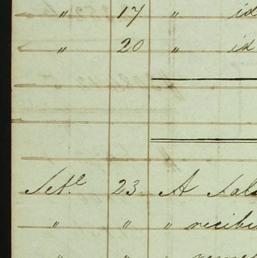 " 17 " id
" 20 " id
Stbe 23 A Sal
" " " recibi
" "